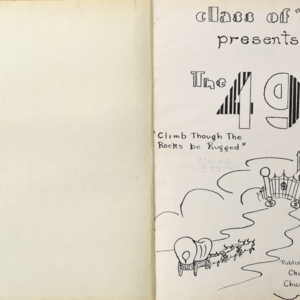 class of "
presents
The 49
"Climb Though The
Rocks be Rugged"
Publis
Ch
Chic